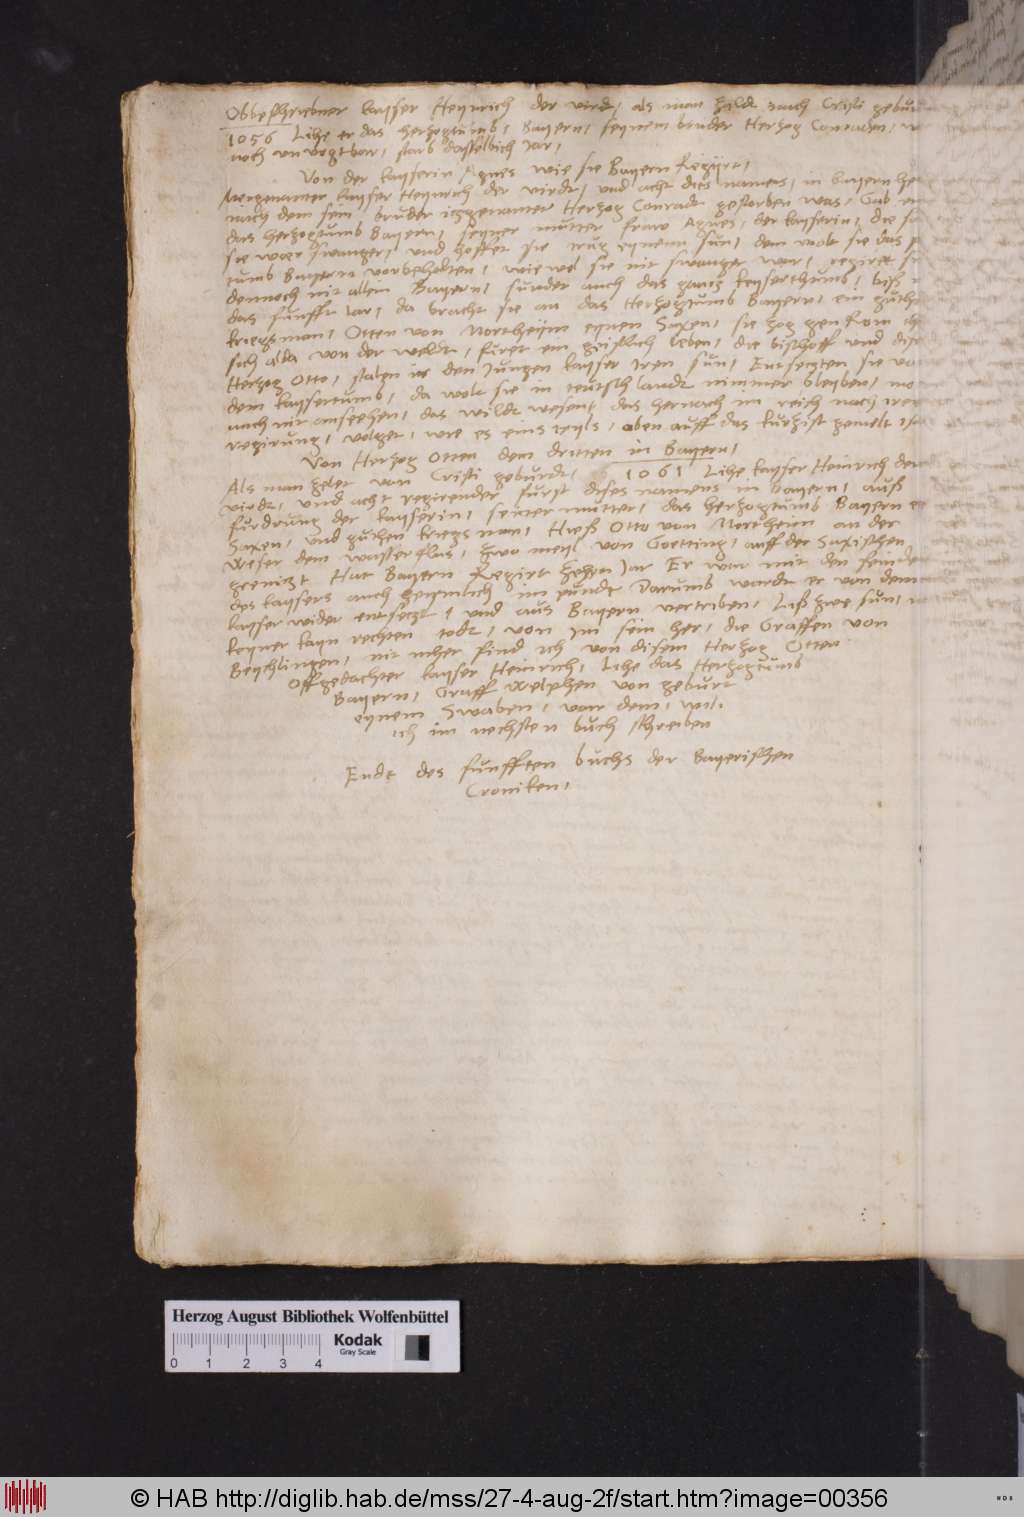 Obbeschriebner kayser Heynrich der vierdt, als man zeldt nach Cristi geburt
1056 Lihe er das herzogtumb, Bayern, seynem bruder Herzog Conraden,
noch unvogtbar, starb dasselbich Jar,
Von der kayserin Agnes wie sie Bayern Regiert,
kayser Heynrich der vierdt, und acht dies namens, in bayern
nach dem sein bruder itzgenanter Herzog Conradt gestorben was, Gab
das herzogtumb Bayern, seyner mutter fraw Agnes, der kayserin, die
sie wær Swanger, und hoffet sie trug eynenn sun, dem wolt sie das
tumb Bayern vorbehalten, wiewol sie nit swanger war, regirtt
dennoch nit allein Bayern, sunder auch das gantz keyserthumb, biß
das funfft Jar, da bracht sie an das Herzogtumb Bayern, ein
kriegsman, Otten von Northeym eynen Saxen, sie zog gen Rom
sich alda von der weldt, furet ein geistlich leben, die bischoff und
Herzog Otto, stalen ir den Jungen kayser Iren sun, Entsezten sie
dem kaysertumb, da wolt sie in teutsch landt nimmer bleyben,
auch nit anseehen, das wildt wesent, das hernach im reich nach irer
regirung, volget, wie es eins teyls, oben auff das kurzist gemelt ist
Von Herzog Otten dem dritten in Bayern,
Als man zelet von Cristi geburdt, 1061 Lihe kayser Heinrich der
vierdt, und acht regirender furst dises namens in Bayern, auß
furdrung der kayserin, seiner mutter, das herzogtumb Bayern
Saxen, und guthen kriegsman, Hieß Otto von Northeim an der
Weser dem wasserflus, zwo meyl von Goetting, auff der Saxischen
greenizt Hat Bayern Regirt zehen Jar Er war mit den feinden
des kaysers auch heymlich im pundt Darumb wardt er von dem
kayser wider entsezt, und aus Bayern vertriben, Ließ zwe sun,
keyner kayn rechten todt, von im sein her, die Graffen von
Beychlingen, nit mher find ich von disem Herzog Otten
Offtgedachter kayser Heinrich, Lihe das Herzogtumb
Bayern, Graff Welphen von geburt
eynem Swaben, von dem, will
ich im nechsten buch schreiben
Ende des funfften buchs der Bayerischen
Croniken,
Herzog August Bibliothek Wolfenbüttel
0 1 2 3 4
Kodak
Gray Scale
© HAB http://diglib.hab.de/mss/27-4-aug-2f/start.htm?image=00356